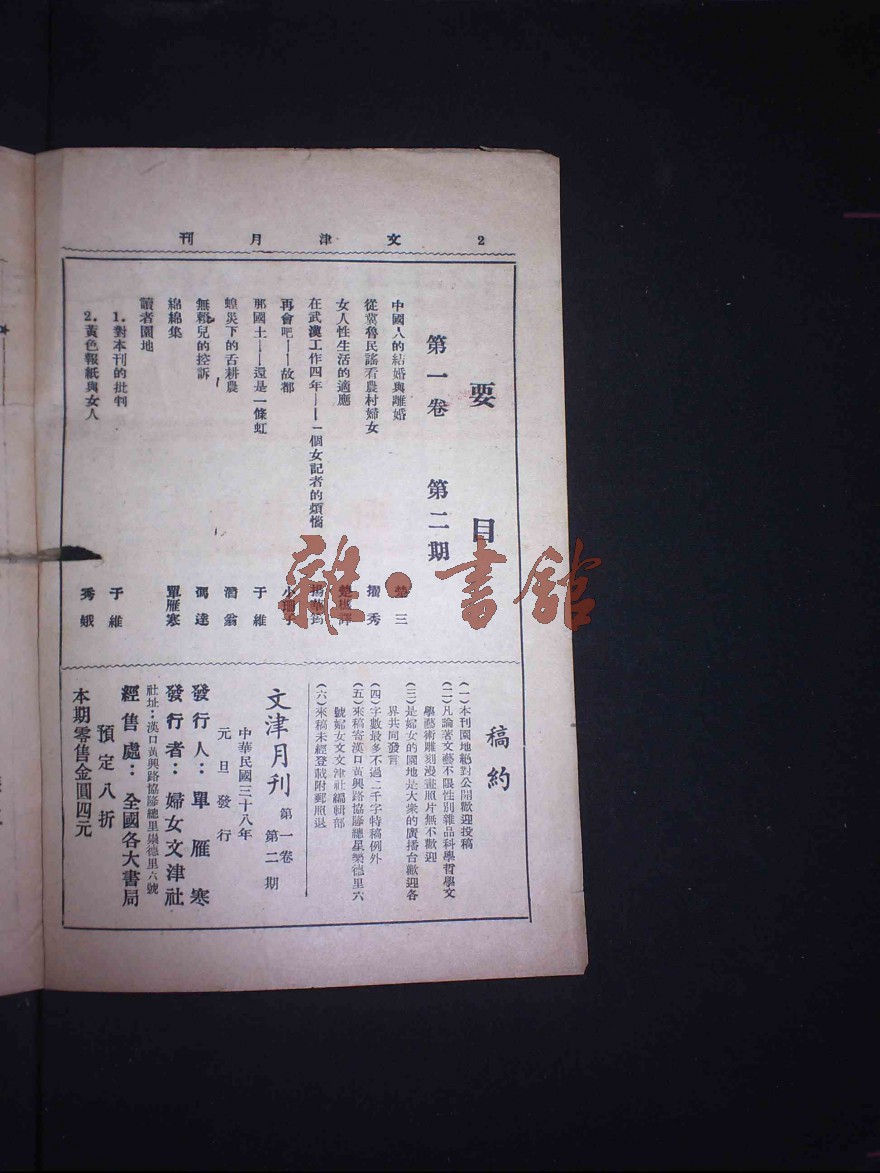 2 文津月刊
要目
第一卷 第二期
中國人的結婚與離婚 三
從冀魯民謠看農村婦女 秀
女人性生活的適應
在武漢工作四年——一個女記者的煩惱
再會吧——故都
那國土——還是一條虹 于維
蝗災下的舌耕農 翁
無賴兒的控訴 馮達
綿綿集 單雁寒
讀者園地
1.對本刊的批判 于維
2.黃色報紙與女人 秀娥
稿約
(一)本刊園地絕對公開歡迎投稿
(二)凡論著文藝不限性別雜品科學哲學文
學藝術雕刻漫畫照片無不歡迎
(三)是婦女的園地是大衆的廣播台歡迎各
界共同發言
(四)字數最多不過二千字特稿例外
(五)來稿寄漢口黃興路協隆總里榮德里六
號婦女文文津社編輯部
(六)來稿未經登載附郵照退
文津月刊 第一卷 第二期
中華民國三十八年
元旦發行
發行人:單雁寒
發行者:婦女文津社
社址:漢口黃興路協隆總里崇德里六號
經售處:全國各大書局
預定八折
本期零售金圓四元
雜·書館